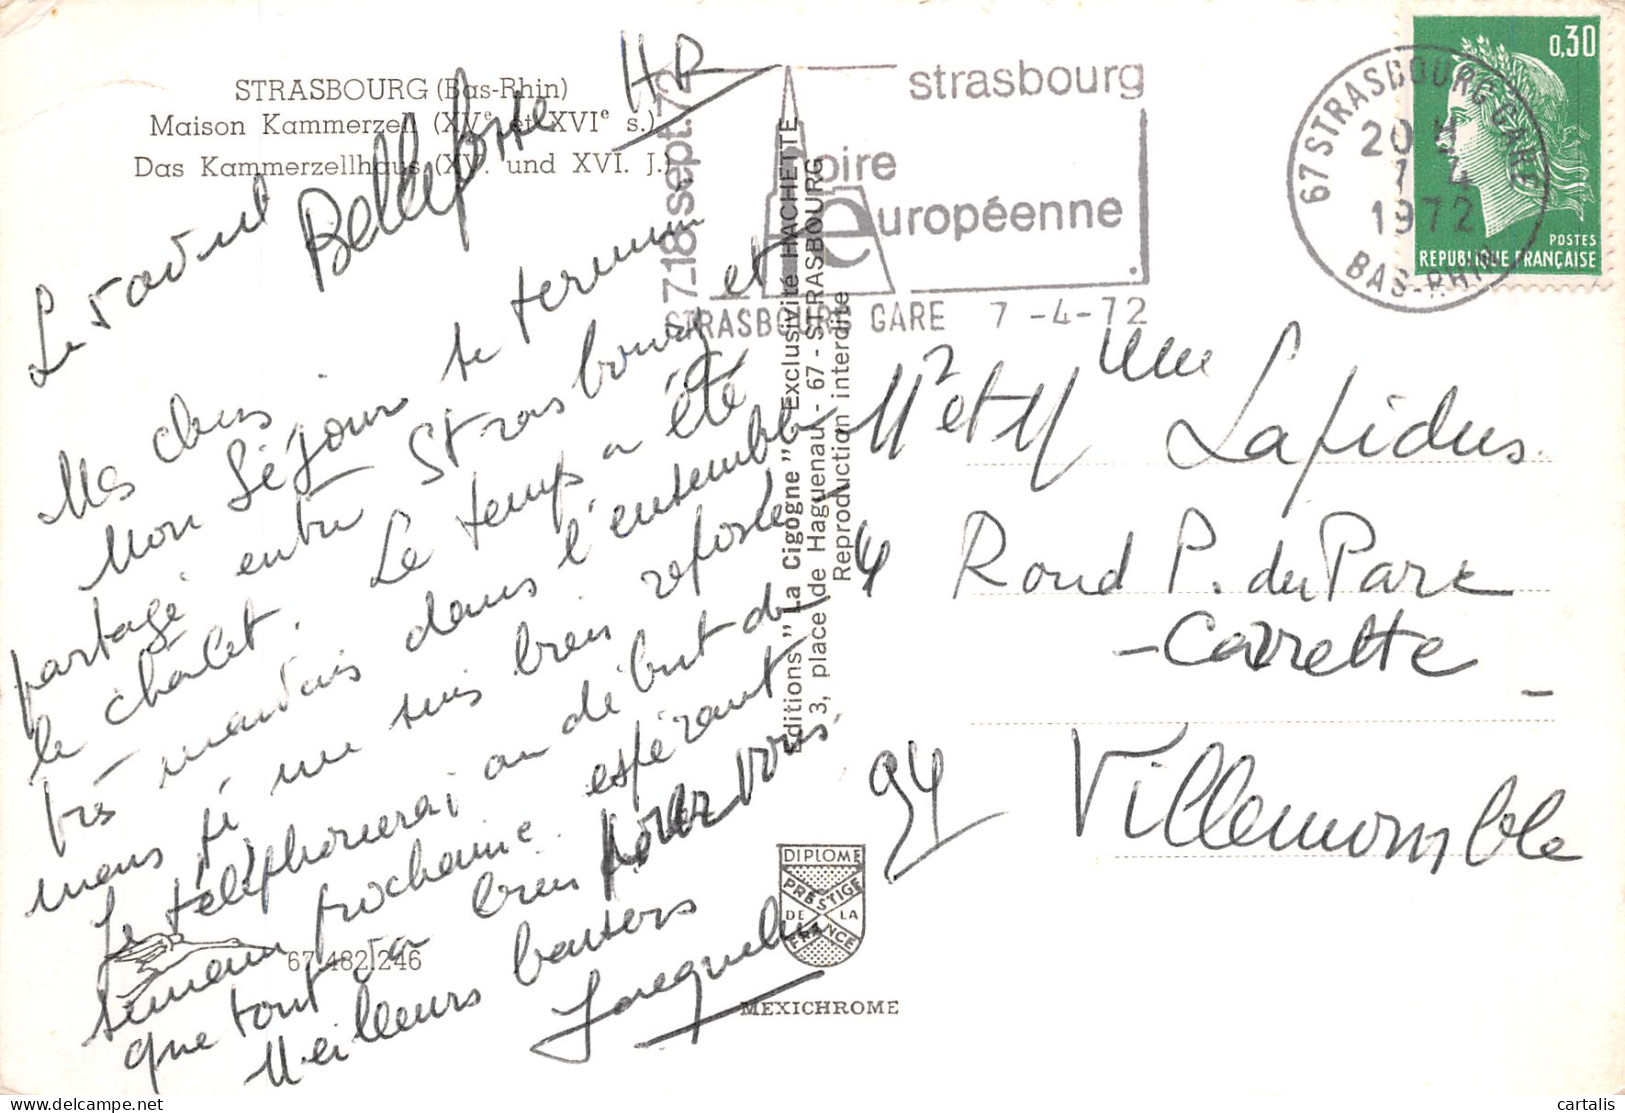 STRASBOURG (Bas-Rhin)
Maison Kammerzell (XVe et XVIe s.)
Das Kammerzellhaus (XV. und XVI. J.)
Le 5 avril
Belle
HR
Mes chers
Mon séjour se termine
partagé entre Strasbourg et
le châlet. Le temps a été
très mauvais dans l'ensemble
mais je me suis bien reposée
Je téléphonerai au début de
semaine prochaine espérant
que tout va bien pour vous.
Meilleurs baisers
Jacqueline
67.482.246
Editions "La Cigogne" Exclusivité HACHETTE
3, place de Haguenau - 67 - STRASBOURG
Reproduction interdite
DIPLOME
PRESTIGE
DE LA
FRANCE
MEXICHROME
7.18 sept. 72
strasbourg
foire
européenne
STRASBOURG GARE 7-4-72
67 STRASBOURG GARE
20 H
7 4
1972
BAS-RHIN
0,30
POSTES
REPUBLIQUE FRANÇAISE
Mr et Mme Lapidus
4 Rond P. du Parc
- Carrette -
94 Villemomble
cartalis